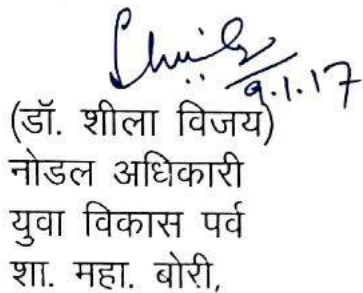 9.1.17
(डॉ. शीला विजय)
नोडल अधिकारी
युवा विकास पर्व
शा. महा. बोरी,